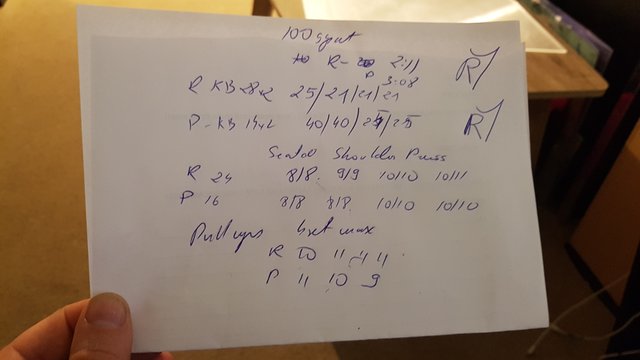 100 squat
R - 2:11
P 3:08
R KB 28x2 25/21/21/21
P - KB 14x2 40/40/25/25
Seated Shoulder Press
R 24 8/8 9/9 10/10 10/11
P 16 8/8 8/8 10/10 10/10
Pull ups 4set max
R 10 11 11 11
P 11 10 9